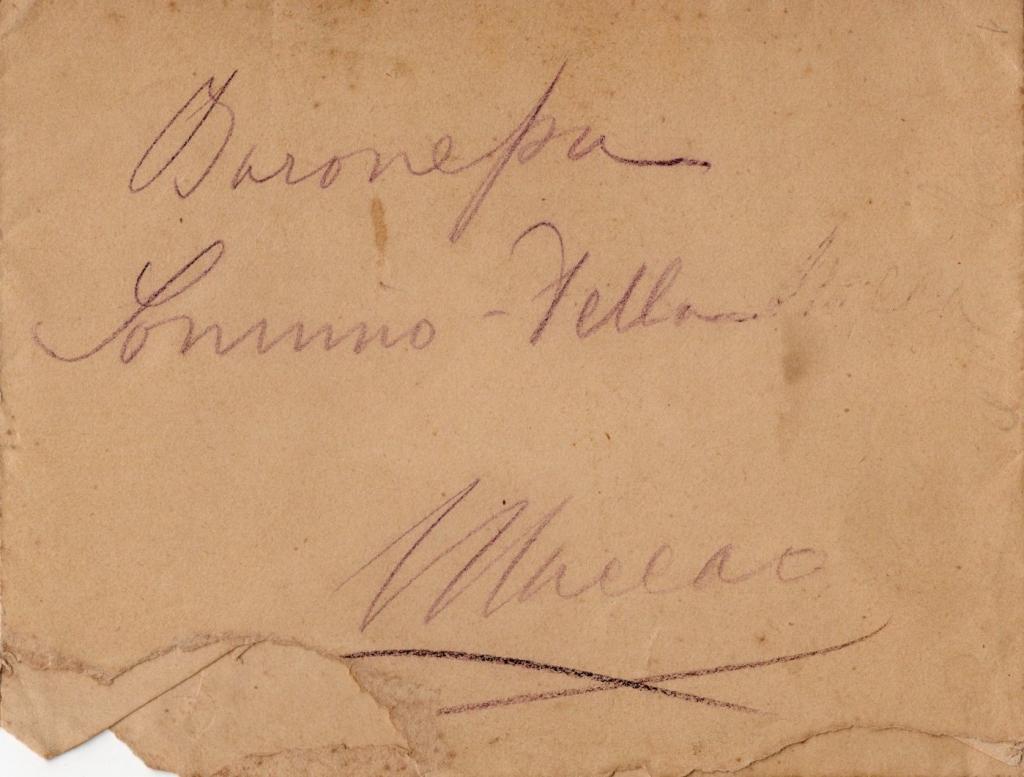 Baronessa
Sonnino - Della
Maccao